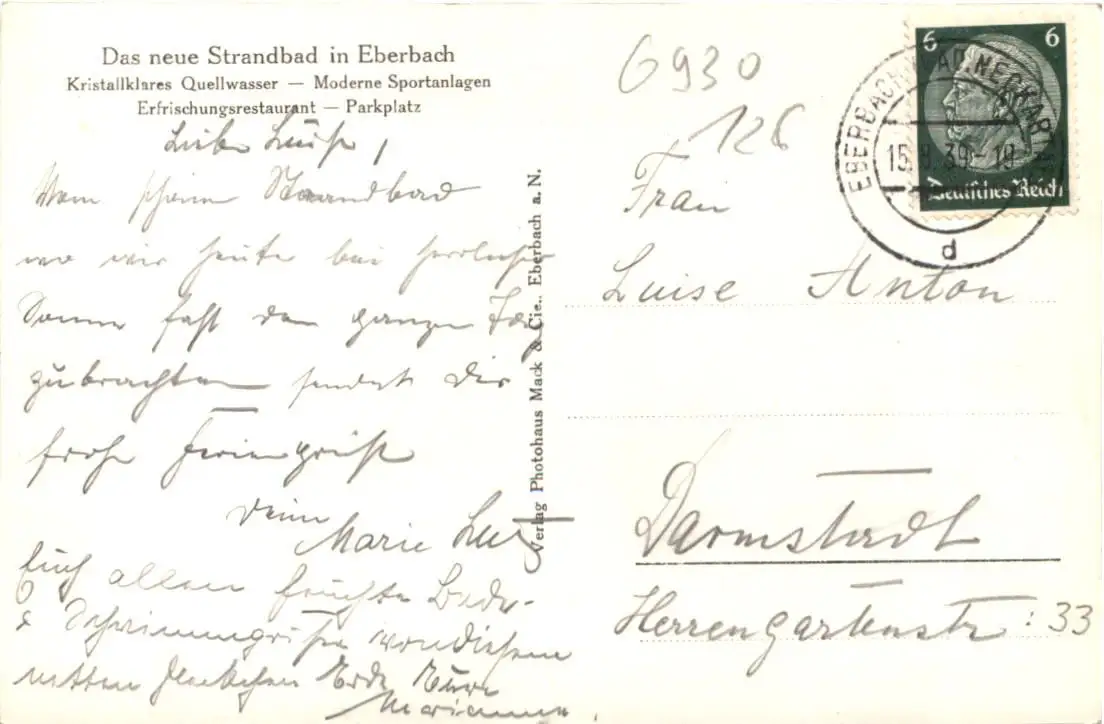 Das neue Strandbad in Eberbach
Kristallklares Quellwasser — Moderne Sportanlagen
Erfrischungsrestaurant — Parkplatz
Liebe Luise,
Vom schönen Strandbad
wo wir heute bei herrlicher
Sonne fast den ganzen Tag
zubrachten sendet Dir
frohe Feriengrüße
Deine
Marie
Euch allen feuchte Bade-
& Schwimmgrüße von diesem
netten Fleckchen Erde Eure
Marianne
Verlag Photohaus Mack & Cie., Eberbach a. N.
6930
126
6 6
Deutsches Reich
EBERBACH
15. 8. 39 - 19
d
Frau
Luise Anton
Darmstadt
Herrengartenstr: 33